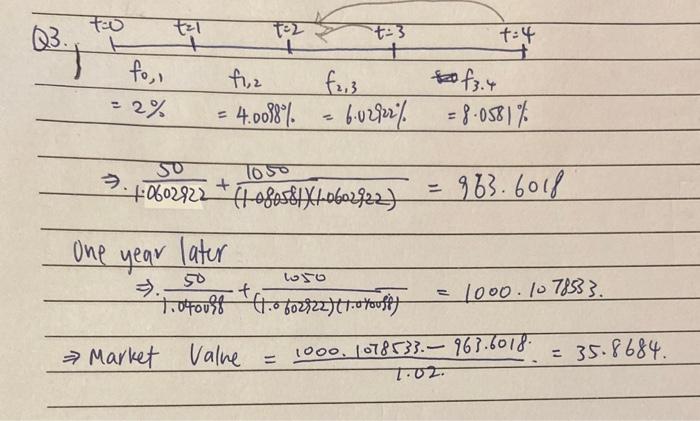 Q3. t=0 t=1 t=2 t=3 t=4
f0,1 f1,2 f2,3 f3.4
= 2% = 4.0098% = 6.02922% = 8.0581%
⇒. 50/1.0602922 + 1050/(1.080581)(1.0602922) = 963.6018
One year later
⇒. 50/1.040098 + 1050/(1.0602922)(1.040098) = 1000.1078533.
⇒ Market Value = 1000.1078533. - 963.6018./1.02. = 35.8684.